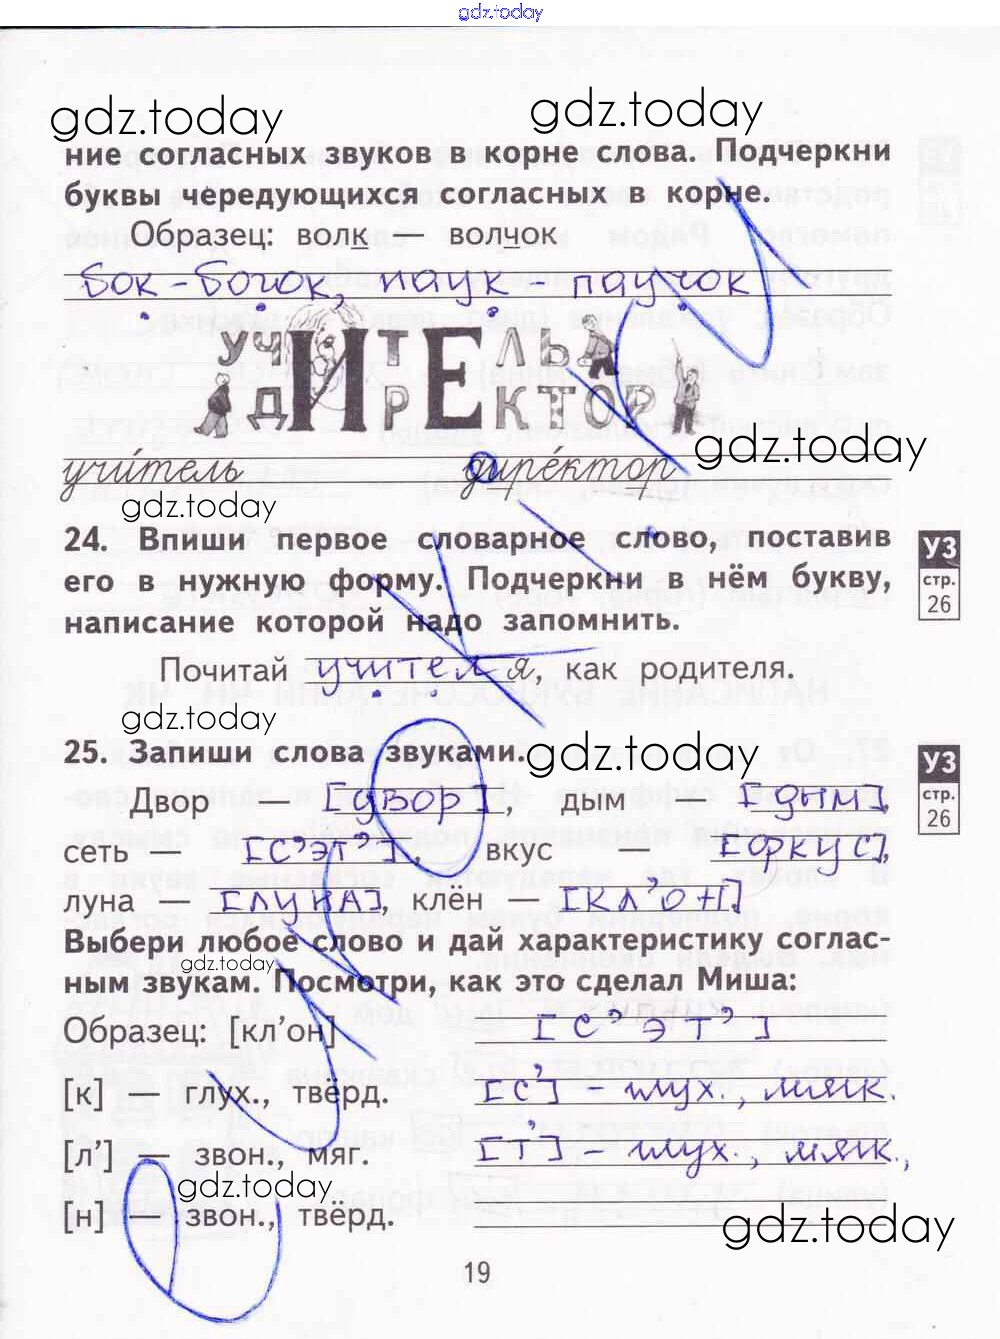 gdz.today
gdz.today gdz.today
ние согласных звуков в корне слова. Подчеркни
буквы чередующихся согласных в корне.
Образец: волк — волчок
бок - бочок, паук - паучок
УЧИТЕЛЬ
ДИРЕКТОР
gdz.today
учи́тель дире́ктор
gdz.today
24. Впиши первое словарное слово, поставив
его в нужную форму. Подчеркни в нём букву,
написание которой надо запомнить.
УЗ
стр.
26
Почитай учителя, как родителя.
gdz.today
25. Запиши слова звуками.
gdz.today
УЗ
стр.
26
Двор — [двор], дым — [дым],
сеть — [с’эт’], вкус — [фкус],
луна — [луна], клён — [кл’он]
Выбери любое слово и дай характеристику соглас-
gdz.today
ным звукам. Посмотри, как это сделал Миша:
Образец: [кл’он] [с’эт’]
[к] — глух., твёрд. [с’] - глух., мягк.
[л’] — звон., мяг. [т’] - глух., мягк.,
gdz.today
[н] — звон., твёрд.
gdz.today
19